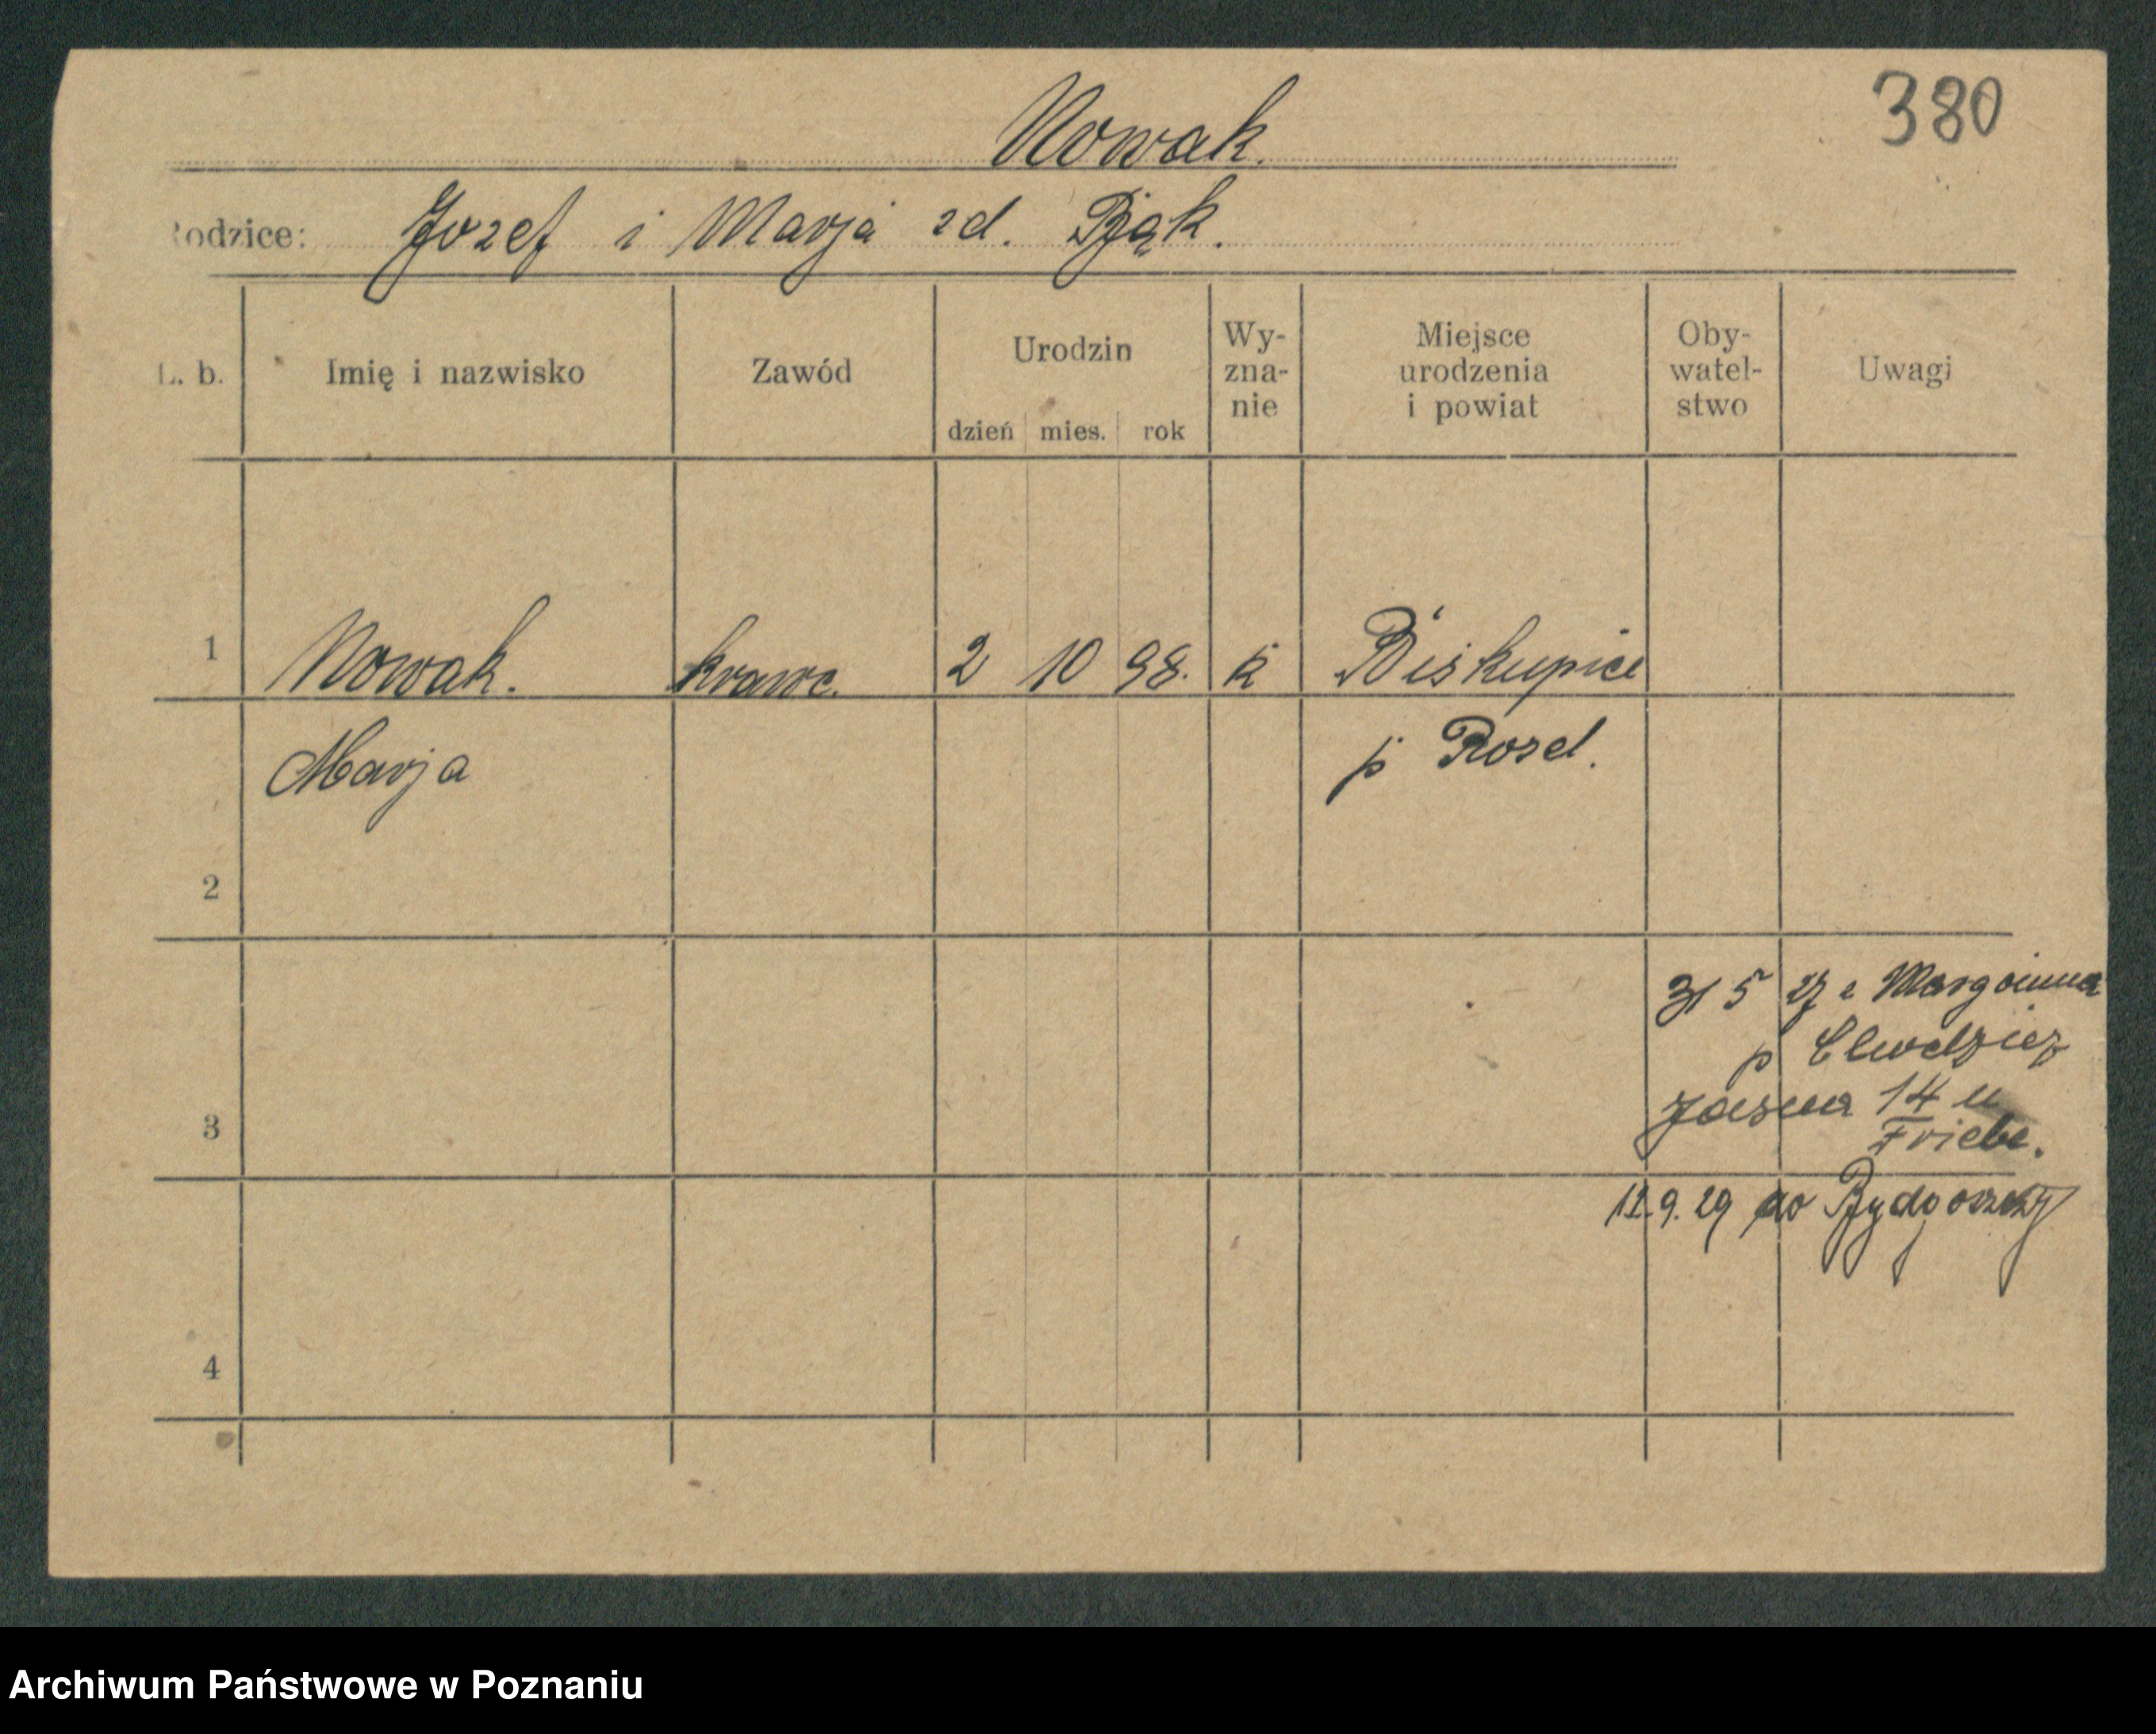 380
Nowak.
Rodzice: Jozef i Marja zd. Bąk.
L. b.
Imię i nazwisko
Zawód
Urodzin
dzień mies. rok
Wy-
zna-
nie
Miejsce
urodzenia
i powiat
Oby-
watel-
stwo
Uwagi
1 Nowak. krawc. 2 10 98. k Biskupice
Marja p
2
31 5 27 z Margonina
p Chodzież
3 Jasna 14 u
Friebe.
12.9.29 do Bydgoszczy
4
Archiwum Państwowe w Poznaniu